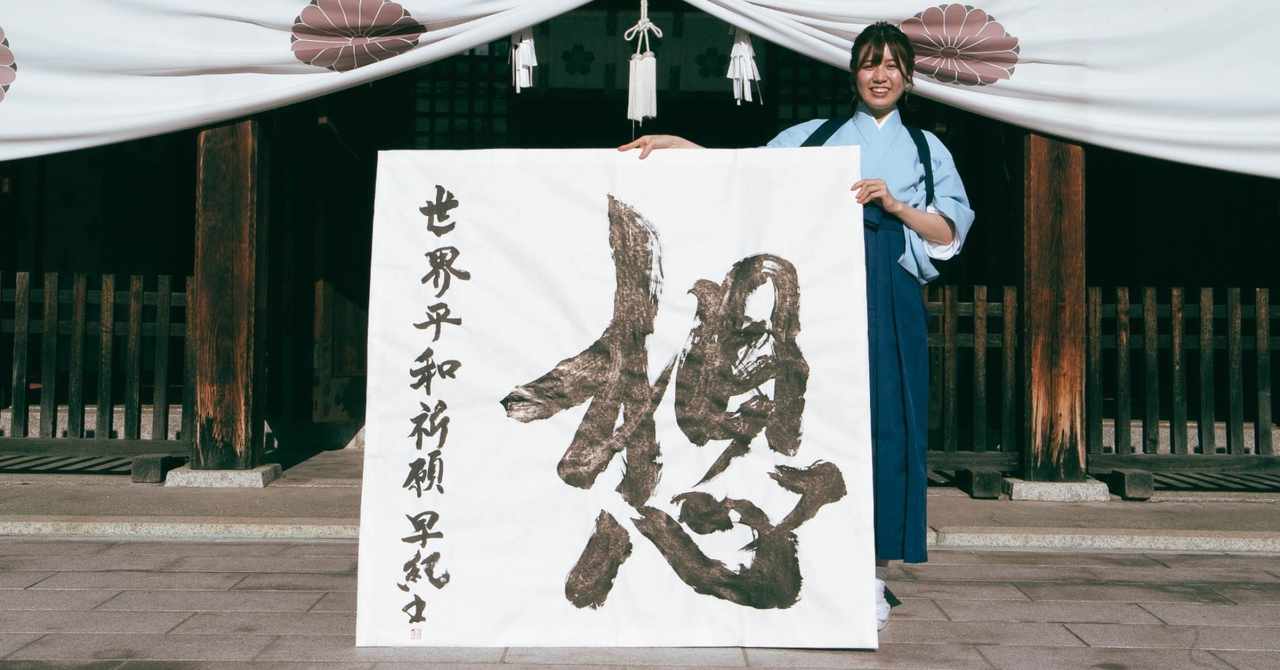 想
世界平和祈願 早紀書